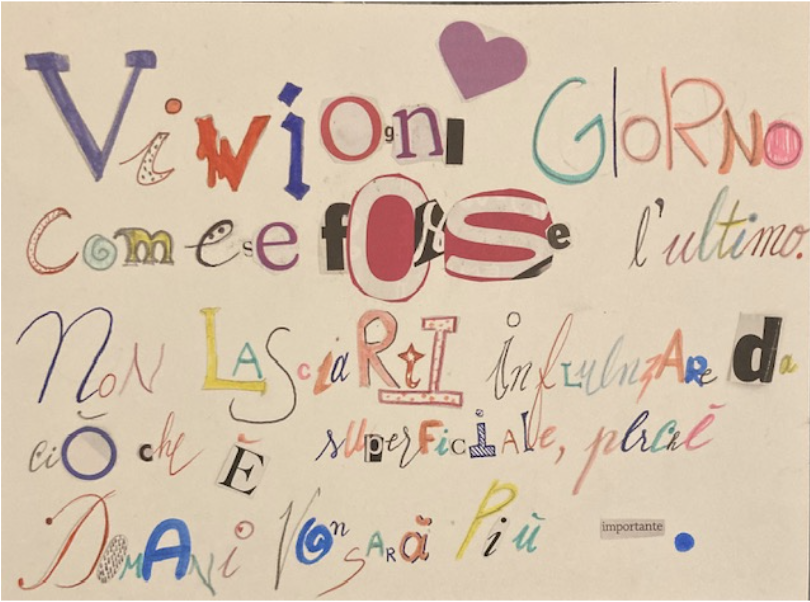 Vivi Ogni GIORNO
Come se fOrSe l'ultimo.
NoN LASciaRtI InfLuEnzARe da
ciò che È suPerFiciALe, perché
DomANi Non SARà Più importante.